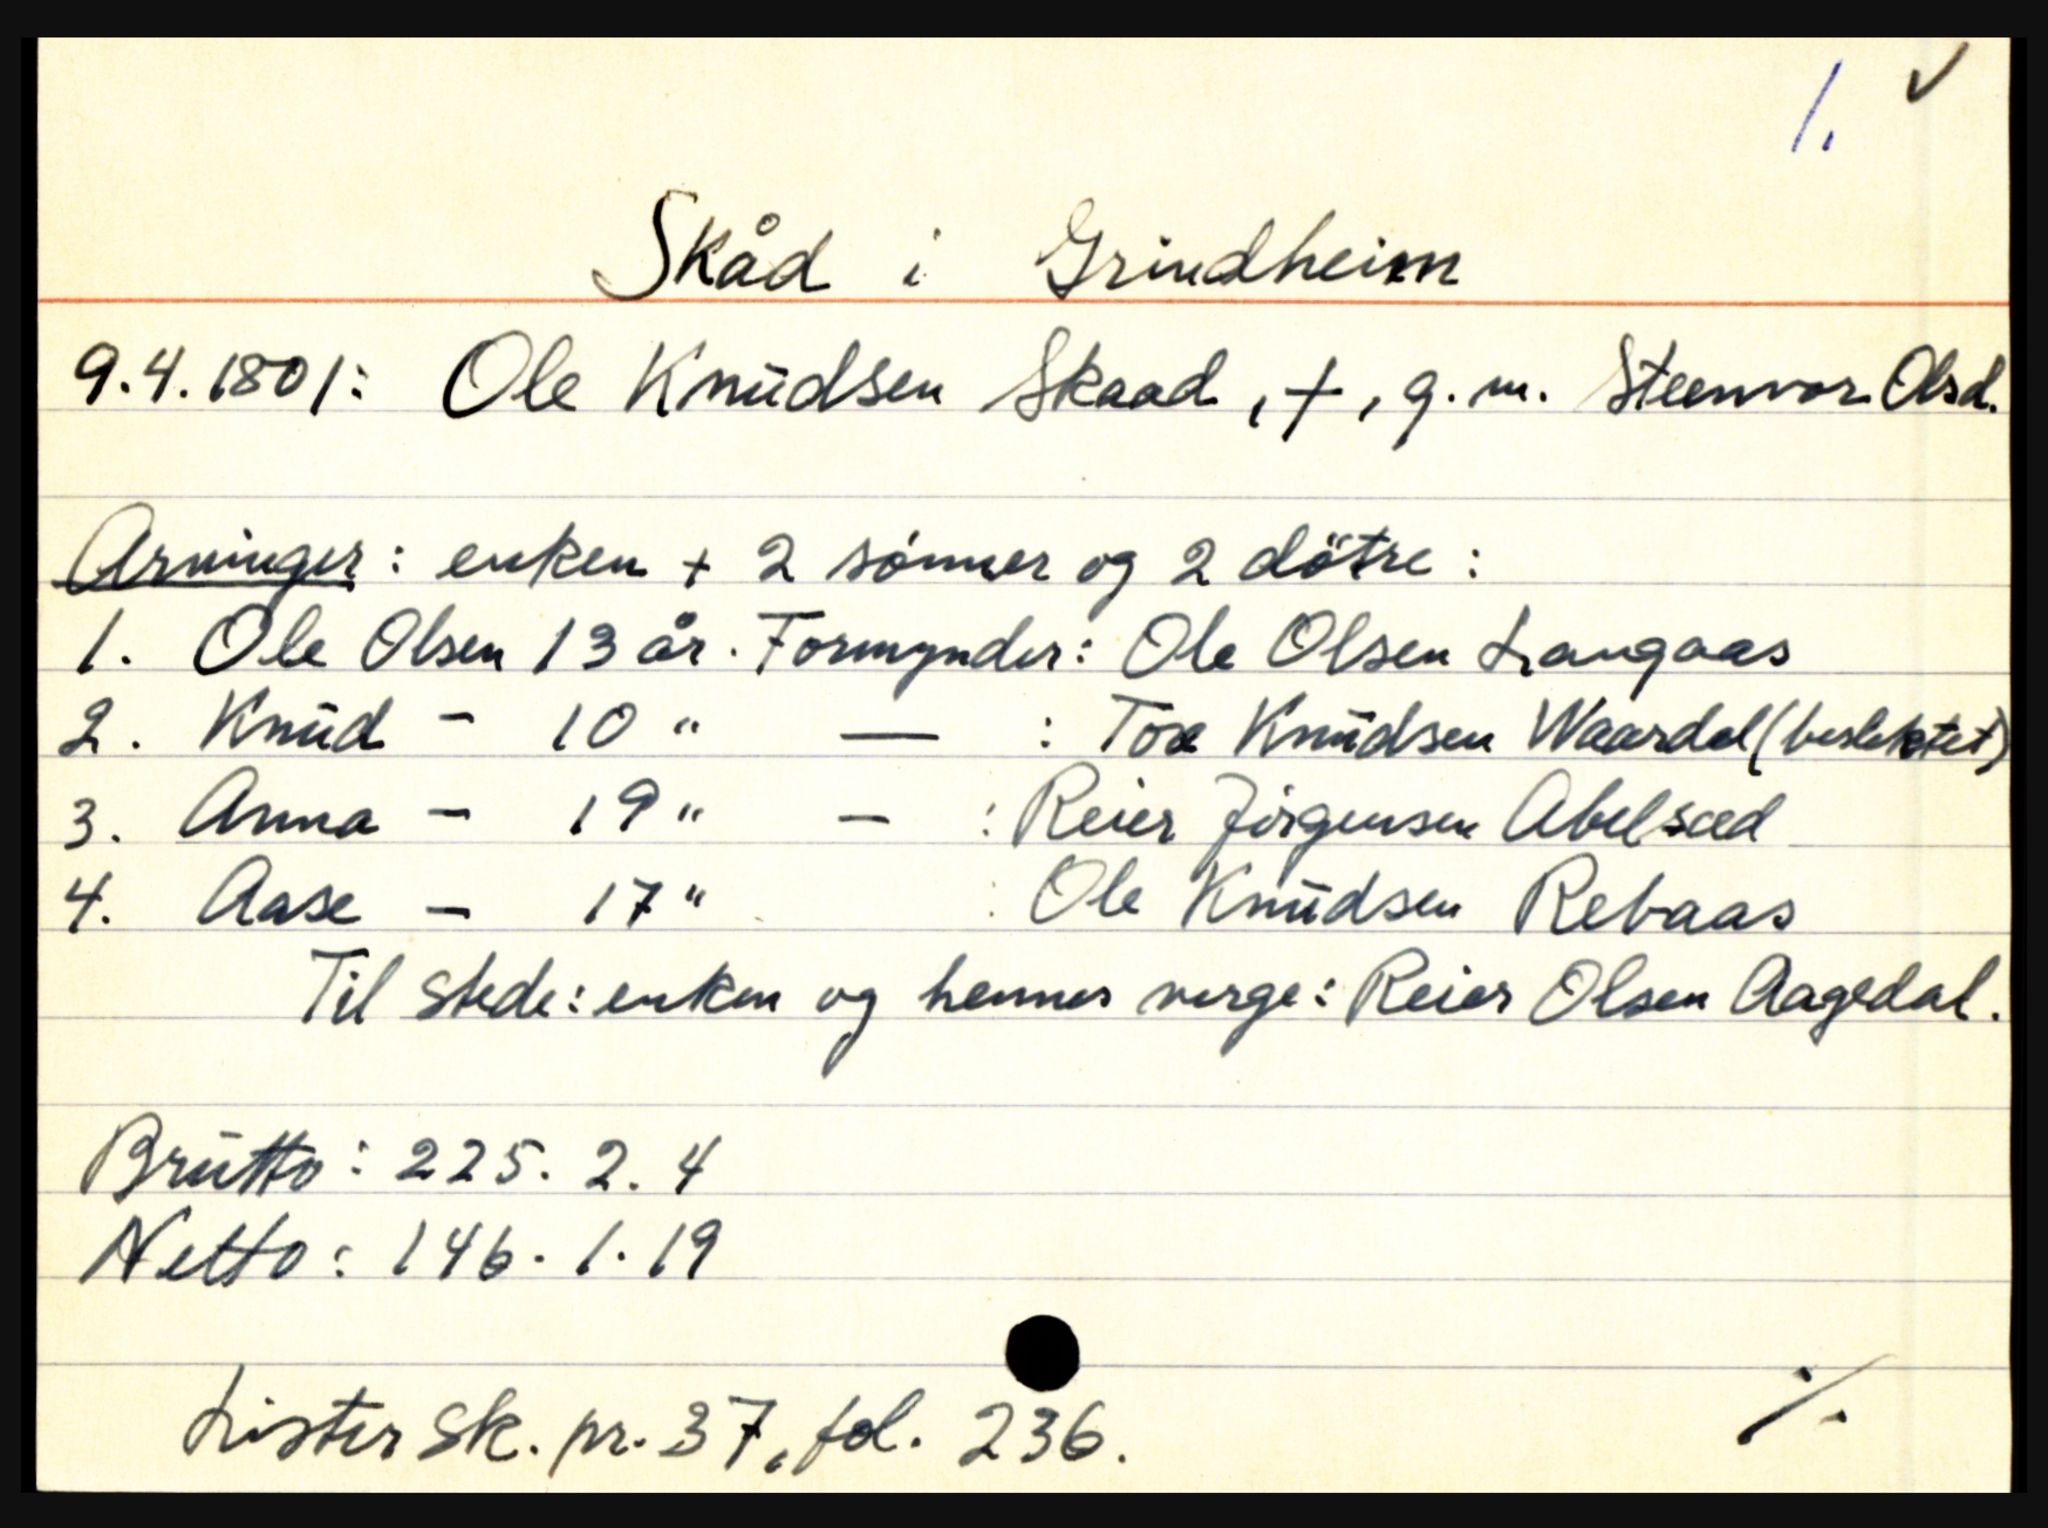 1. ✓
Skåd i Grindheim
9.4.1801: Ole Knudsen Skaad, †, g.m. Steenvor Olsd.
Arvinger: enken + 2 sønner og 2 døtre:
1. Ole Olsen 13 år. Formynder: Ole Olsen Langaas
2. Knud - 10 " — : Tore Knudsen Waardal (beslektet)
3. Anna - 19 " - : Reier Jørgensen Abelsæd
4. Aase - 17 " : Ole Knudsen Rebaas
Til stede: enken og hennes verge: Reier Olsen Aagedal.
Brutto: 225. 2. 4
Netto: 146. 1. 19
Lister sk. pr. 37, fol. 236.
./.